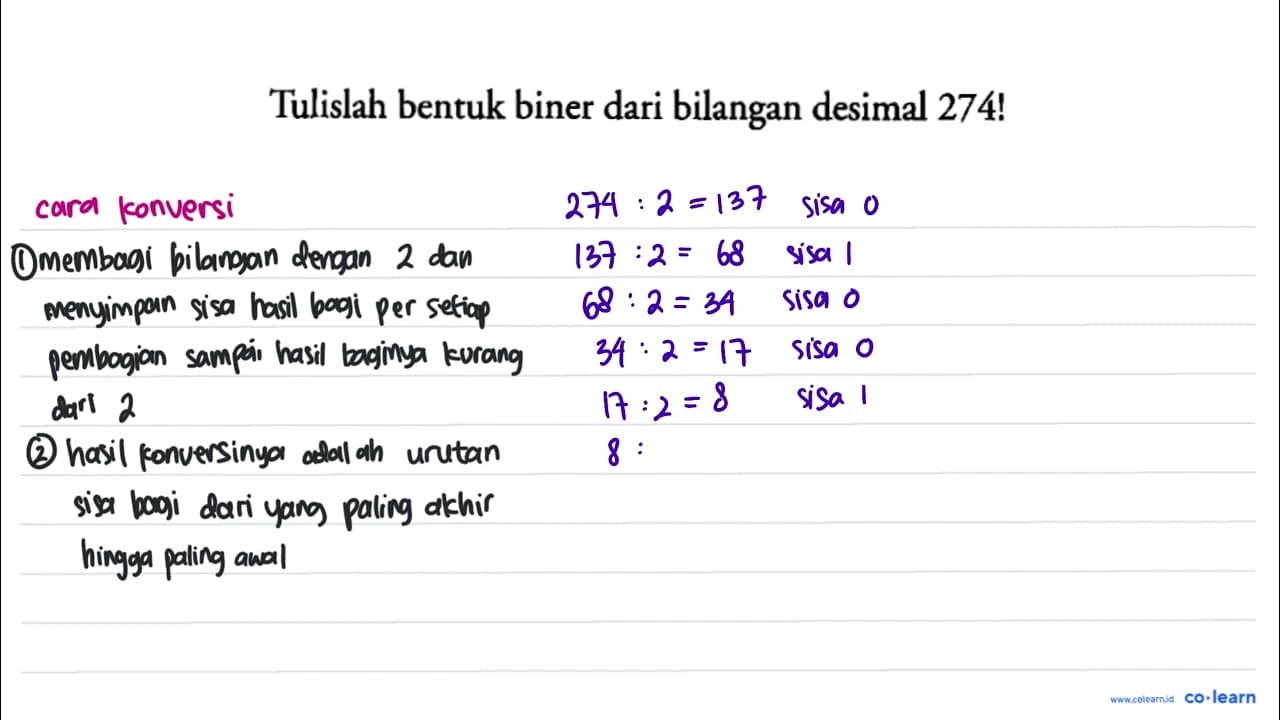 Tulislah bentuk biner dari bilangan desimal 274!
cara konversi
① membagi bilangan dengan 2 dan
menyimpan sisa hasil bagi per setiap
pembagian sampai hasil baginya kurang
dari 2
② hasil konversinya adalah urutan
sisa bagi dari yang paling akhir
hingga paling awal
274 : 2 = 137 sisa 0
137 : 2 = 68 sisa 1
68 : 2 = 34 sisa 0
34 : 2 = 17 sisa 0
17 : 2 = 8 sisa 1
8 :
www.colearn.id co·learn